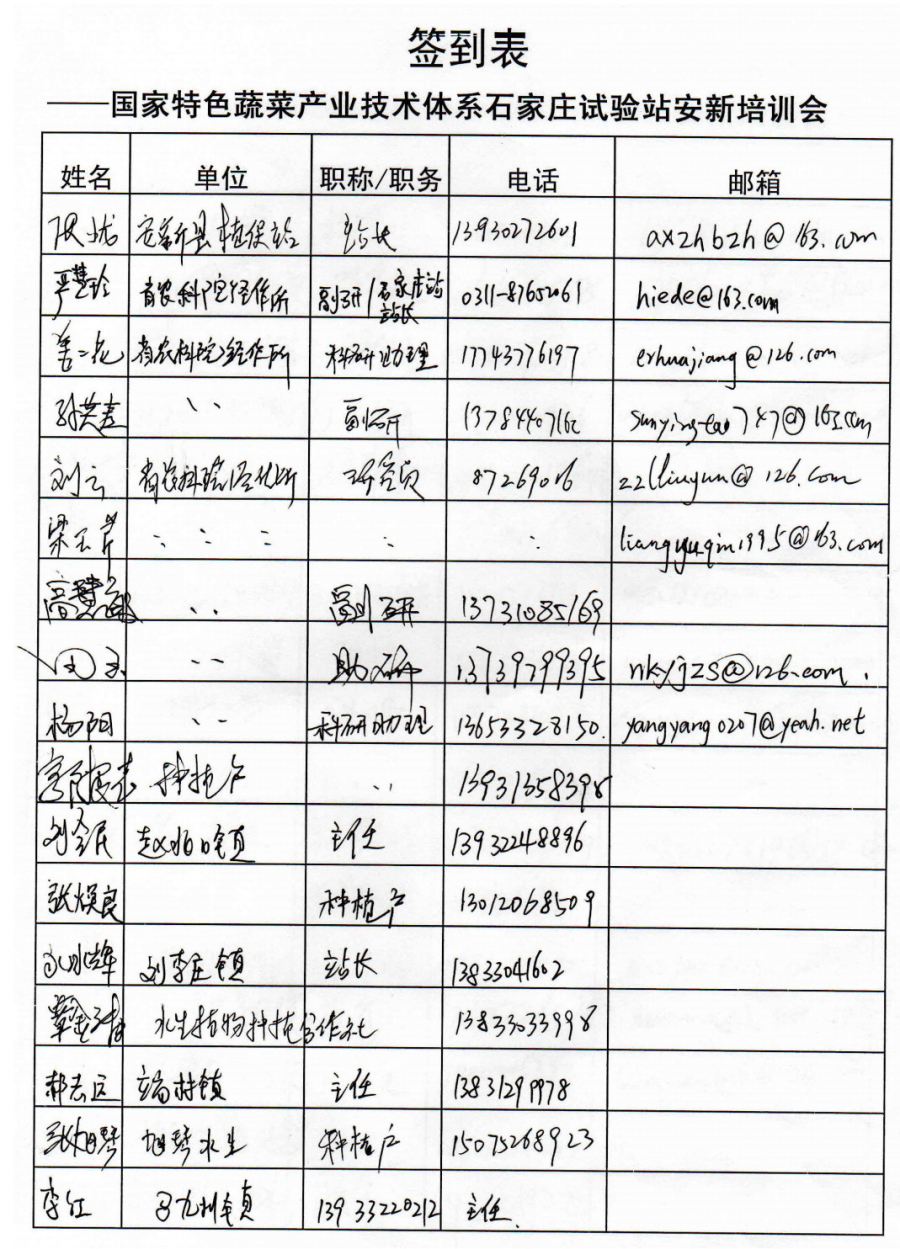 签到表
——国家特色蔬菜产业技术体系石家庄试验站安新培训会
姓名 单位 职称/职务 电话 邮箱
安新县植保站 站长 13930272601 axzhbzh@163.com
严慧玲 省农科院经作所 副研/石家庄站站长 0311-87652061 hiede@163.com
姜二花 省农科院经作所 科研助理 17743776197 erhuajiang@126.com
孙英焘 〃 副研 sunyingtao747@163.com
刘云 省农科院经作所 研究员 87269016 zzlliuyun@126.com
梁玉芹 〃 〃 〃 〃 liangyuqin1995@163.com
高慧敏 〃 副研 13731085169
〃 助研 13739799395 nkyjzs@126.com
杨阳 〃 科研助理 13653328150 yangyang0207@yeah.net
种植户 〃 13931358398
刘全民 赵北口镇 主任 13932248896
张焕良 种植户 13012068509
刘李庄镇 站长 13833041602
水生植物种植合作社 13833033998
郝志远 主任 13831299978
张旭琴 旭琴水生 种植户 15075268923
李红 13933220212 主任